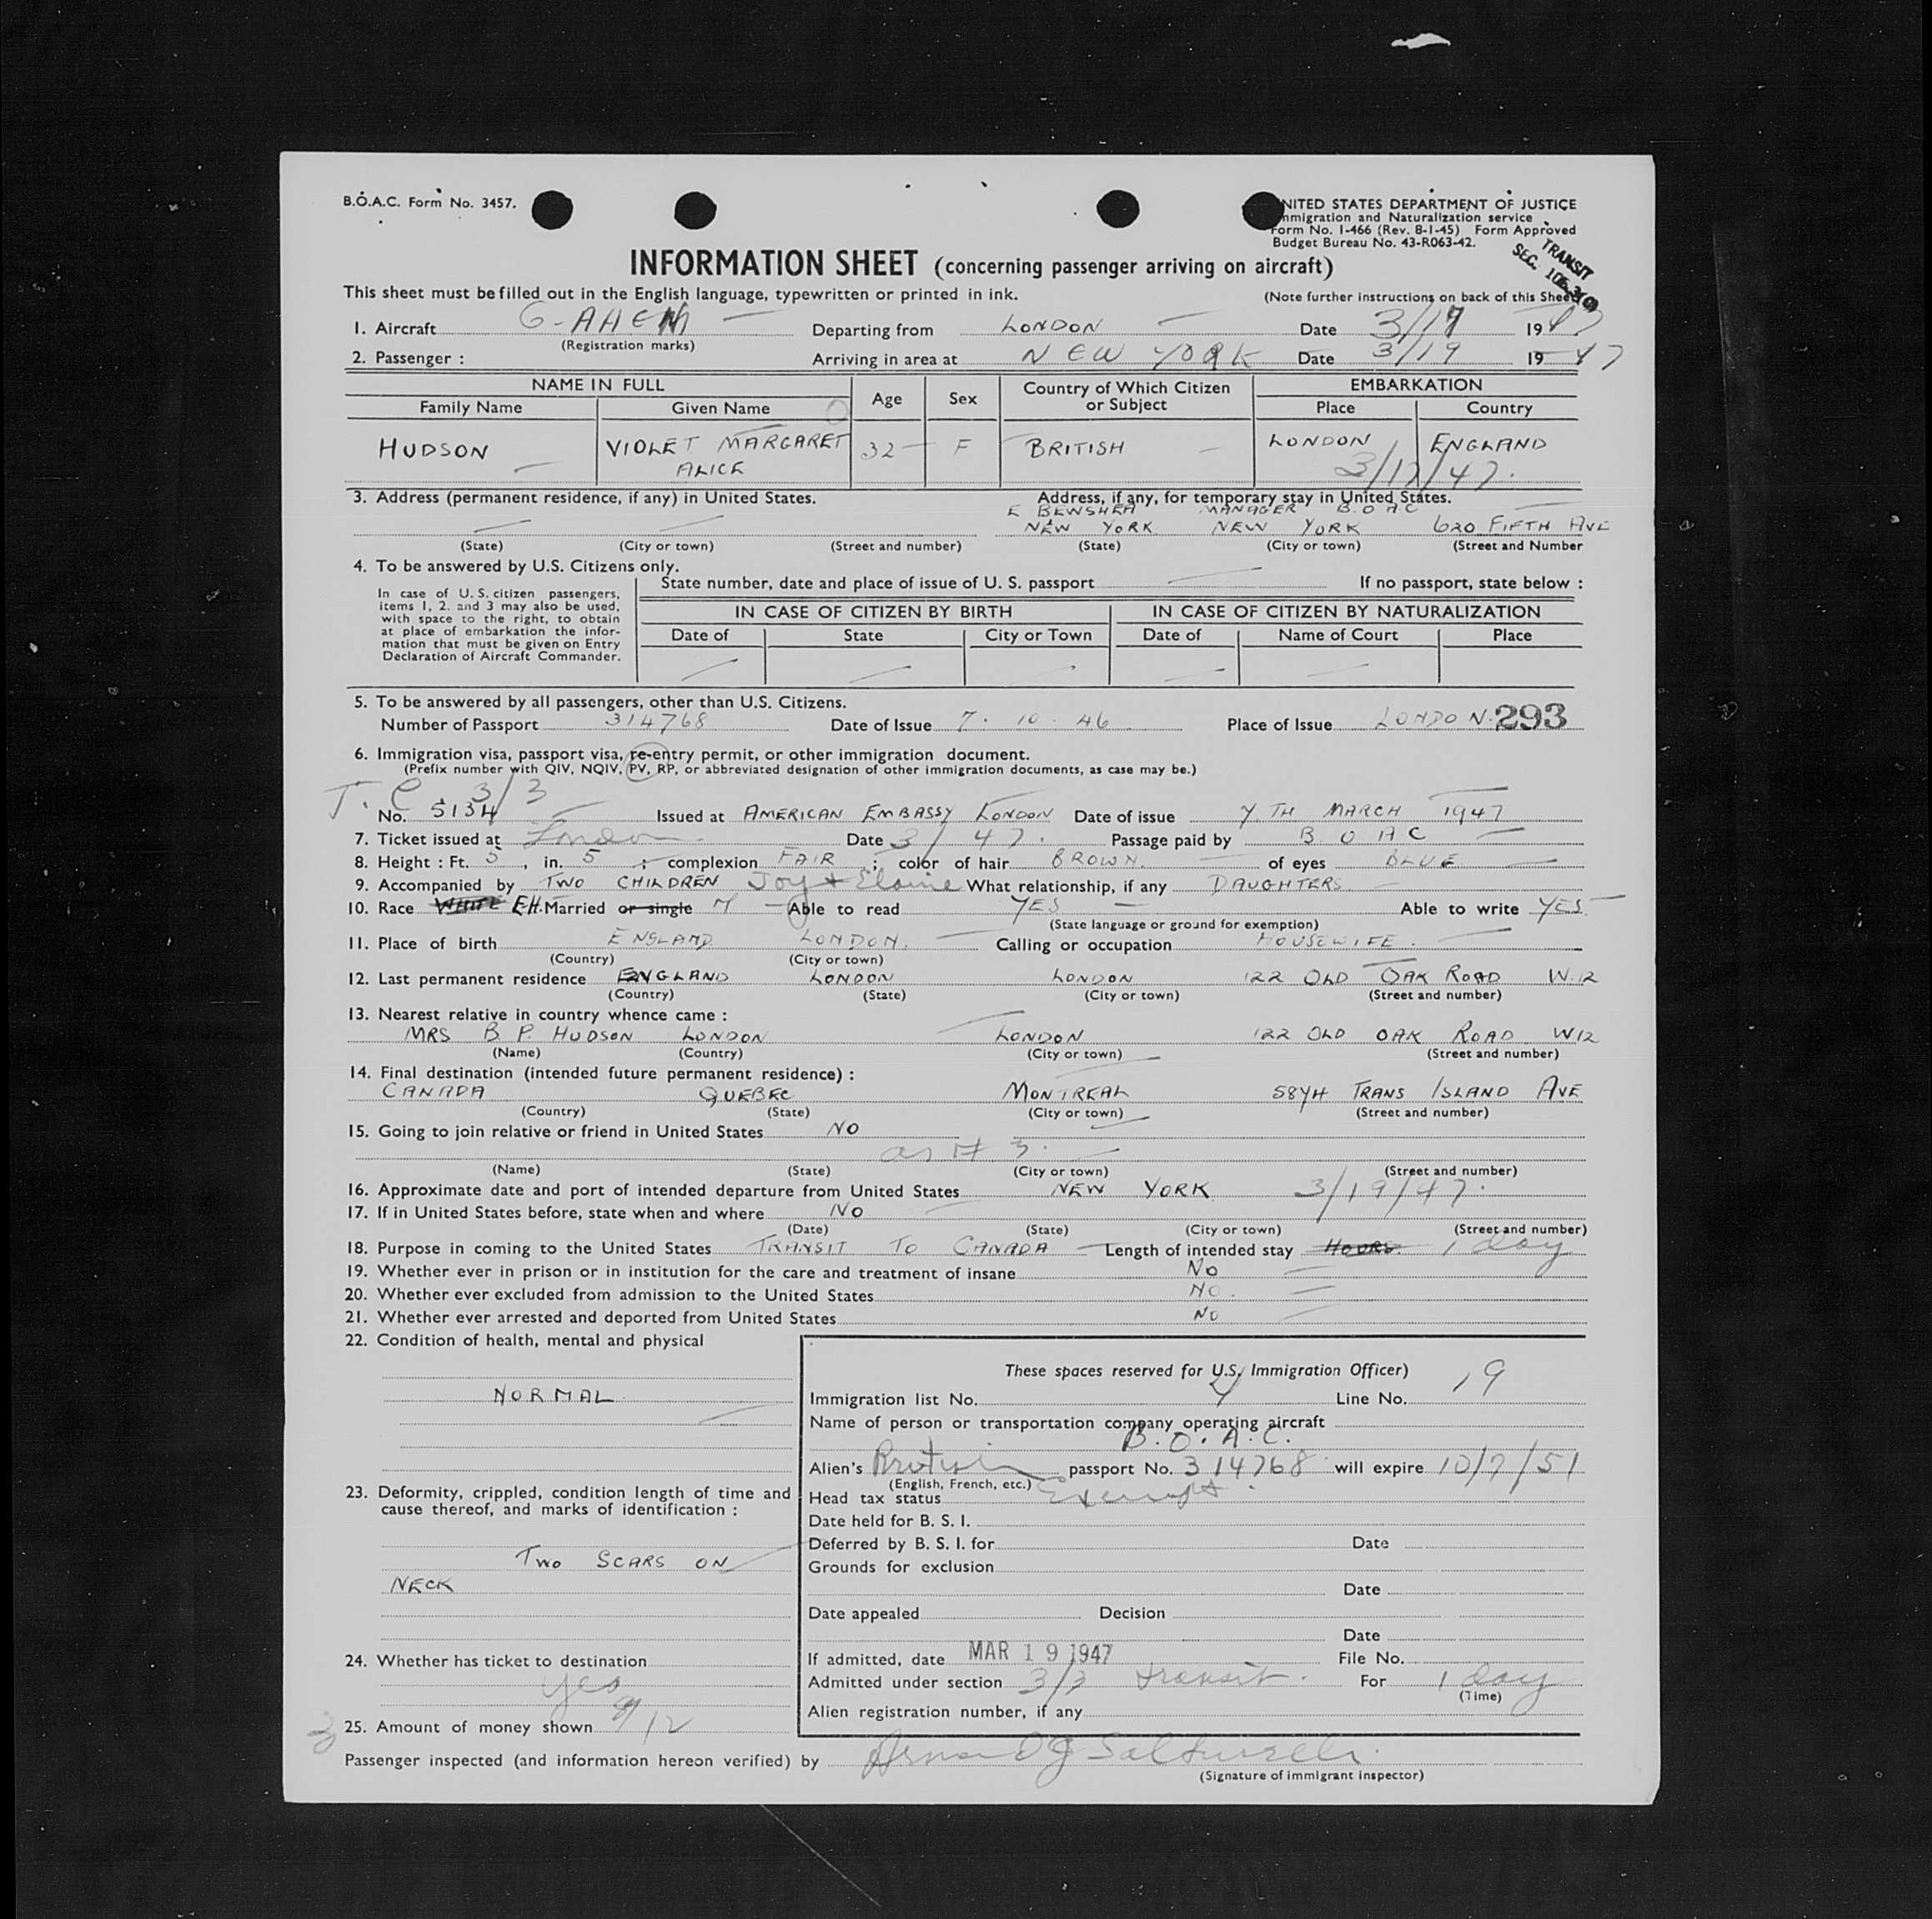 B.O.A.C. Form No. 3457.
UNITED STATES DEPARTMENT OF JUSTICE
Immigration and Naturalization service
Form No. I-466 (Rev. 8-1-45) Form Approved
Budget Bureau No. 43-R063-42.
TRANSIT
SEC.
INFORMATION SHEET (concerning passenger arriving on aircraft)
This sheet must be filled out in the English language, typewritten or printed in ink.
(Note further instructions on back of this Sheet)
1. Aircraft G-AHEM Departing from LONDON Date 3/17 1947
(Registration marks)
2. Passenger : Arriving in area at NEW YORK Date 3/19 1947
NAME IN FULL Age Sex Country of Which Citizen or Subject EMBARKATION
Family Name Given Name Place Country
HUDSON VIOLET MARGARET ALICE 32 F BRITISH LONDON ENGLAND
3/17/47.
3. Address (permanent residence, if any) in United States. Address, if any, for temporary stay in United States.
E BEWSHEA MANAGER B.O.A.C
NEW YORK NEW YORK 620 FIFTH AVE
(State) (City or town) (Street and number) (State) (City or town) (Street and Number
4. To be answered by U.S. Citizens only.
In case of U.S. citizen passengers,
items 1, 2. and 3 may also be used,
with space to the right, to obtain
at place of embarkation the infor-
mation that must be given on Entry
Declaration of Aircraft Commander.
State number, date and place of issue of U. S. passport If no passport, state below :
IN CASE OF CITIZEN BY BIRTH IN CASE OF CITIZEN BY NATURALIZATION
Date of State City or Town Date of Name of Court Place
5. To be answered by all passengers, other than U.S. Citizens.
Number of Passport 314768 Date of Issue 7. 10. 46 Place of Issue LONDON. 293
6. Immigration visa, passport visa, re-entry permit, or other immigration document.
(Prefix number with QIV, NQIV, PV, RP, or abbreviated designation of other immigration documents, as case may be.)
T. C. 3/3
No. 5134 Issued at AMERICAN EMBASSY LONDON Date of issue 7TH MARCH 1947
7. Ticket issued at London Date 3/47. Passage paid by B.O.A.C
8. Height : Ft. 5, in. 5; complexion FAIR; color of hair BROWN of eyes BLUE
9. Accompanied by TWO CHILDREN Joy + Elaine What relationship, if any DAUGHTERS
10. Race WHITE EH. Married or single M Able to read YES Able to write YES
(State language or ground for exemption)
11. Place of birth ENGLAND LONDON. Calling or occupation HOUSEWIFE.
(Country) (City or town)
12. Last permanent residence ENGLAND LONDON LONDON 122 OLD OAK ROAD W.12
(Country) (State) (City or town) (Street and number)
13. Nearest relative in country whence came :
MRS B. P. HUDSON LONDON LONDON 122 OLD OAK ROAD W12
(Name) (Country) (City or town) (Street and number)
14. Final destination (intended future permanent residence) :
CANADA QUEBEC MONTREAL 5874 TRANS ISLAND AVE
(Country) (State) (City or town) (Street and number)
15. Going to join relative or friend in United States NO
as # 3.
(Name) (State) (City or town) (Street and number)
16. Approximate date and port of intended departure from United States NEW YORK 3/19/47.
17. If in United States before, state when and where NO
(Date) (State) (City or town) (Street and number)
18. Purpose in coming to the United States TRANSIT TO CANADA Length of intended stay HOURS 1 day
19. Whether ever in prison or in institution for the care and treatment of insane NO
20. Whether ever excluded from admission to the United States NO.
21. Whether ever arrested and deported from United States NO
22. Condition of health, mental and physical
NORMAL
23. Deformity, crippled, condition length of time and
cause thereof, and marks of identification :
TWO SCARS ON
NECK
24. Whether has ticket to destination
yes
25. Amount of money shown 12
These spaces reserved for U.S. Immigration Officer)
Immigration list No. 4 Line No. 19
Name of person or transportation company operating aircraft
B.O.A.C.
Alien's British passport No. 314768 will expire 10/7/51
(English, French, etc.)
Head tax status Exempt.
Date held for B. S. I.
Deferred by B. S. I. for Date
Grounds for exclusion
Date
Date appealed Decision
Date
If admitted, date MAR 19 1947 File No.
Admitted under section 3/3 transit. For 1 day
(Time)
Alien registration number, if any
Passenger inspected (and information hereon verified) by
(Signature of immigrant inspector)